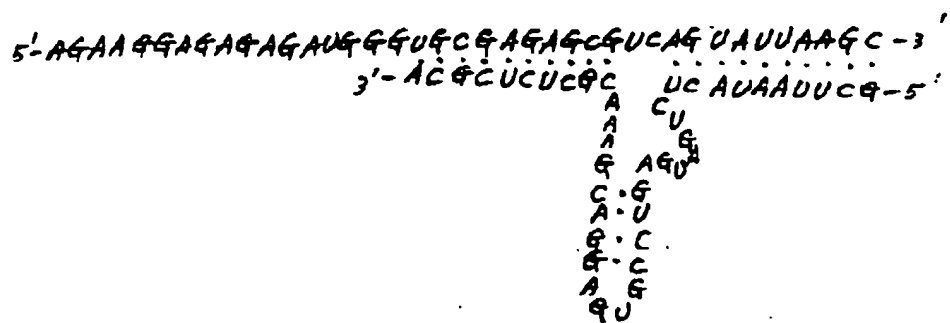 5'-AGAAGGAGAGAGAUGGGUGCGAGAGCGUCAGUAUUAAGC-3'
3'-ACGCUCUCGC UC AUAAUUCG-5'
A C
A U
A G
G AGUA
C·G
A·U
G·C
G·C
A G
G U